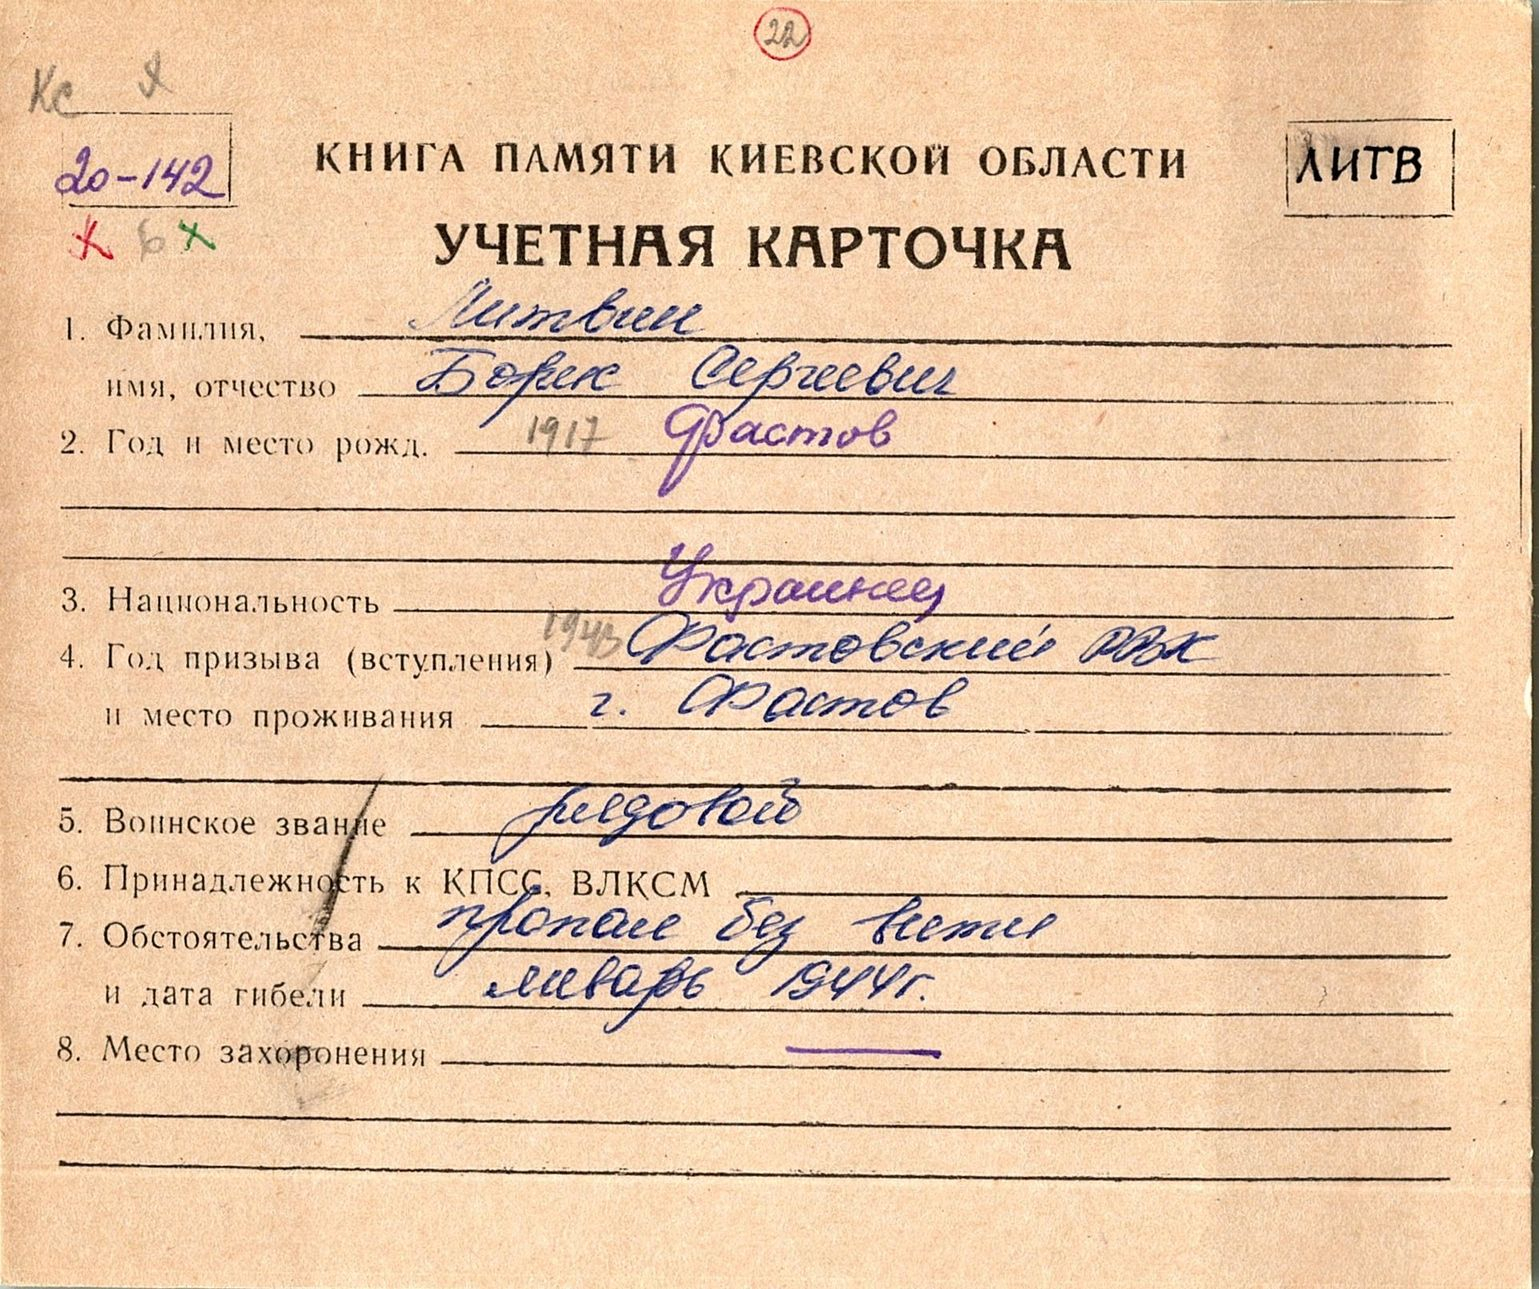 22
Кс Я
20-142
КНИГА ПАМЯТИ КИЕВСКОЙ ОБЛАСТИ
ЛИТВ
УЧЕТНАЯ КАРТОЧКА
1. Фамилия, Литвин
имя, отчество Борис Сергеевич
2. Год и место рожд. 1917 Фастов
3. Национальность Украинец
4. Год призыва (вступления) 1943 Фастовский РВК
и место проживания г. Фастов
5. Воинское звание рядовой
6. Принадлежность к КПСС, ВЛКСМ
7. Обстоятельства пропал без вести
и дата гибели январь 1944г.
8. Место захоронения —